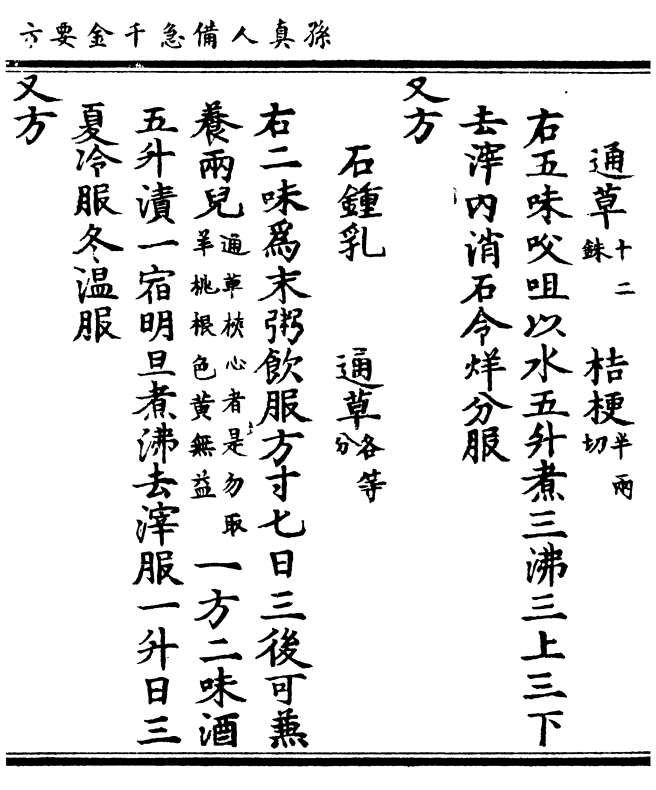 孫真人備急千金要方
通草十二銖 桔梗半兩切
右五味㕮咀以水五升煮三沸三上三下
去滓內消石令烊分服
又方
石鍾乳 通草各等分
右二味為末粥飲服方寸匕日三後可兼
養兩兒通草橫心者是勿取羊桃根色黃無益一方二味酒
五升漬一宿明旦煮沸去滓服一升日三
夏冷服冬溫服
又方